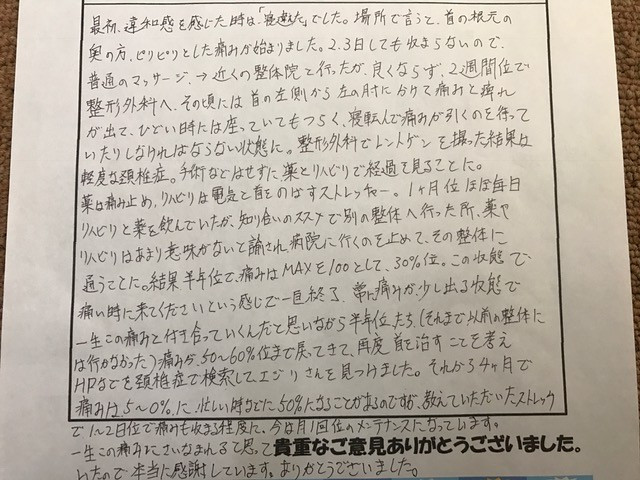 最初、違和感を感じた時は、「寝違えた」でした。場所で言うと、首の根元の
奥の方、ピリピリとした痛みが始まりました。2.3日しても収まらないので、
普通のマッサージ、→近くの整体院と行ったが、良くならず、2週間位で
整形外科へ、その頃には首の左側から左の肘にかけて痛みと痺れ
が出て、ひどい時には座っていてもつらく、寝転んで痛みが引くのを待って
いたりしなければならない状態に。整形外科でレントゲンを撮った結果は
軽度な頚椎症。手術などはせずに薬とリハビリで経過を見ることに。
薬は痛み止め、リハビリは電気と首をのばすストレッチャー。1ヶ月位ほぼ毎日
リハビリと薬を飲んでいたが、知り合いのススメで別の整体へ行った所、薬や
リハビリはあまり意味がないと諭され、病院に行くのを止めて、その整体に
通うことに。結果半年位で、痛みはMAXを100として、30%位。この状態で
痛い時に来てくださいという感じで一旦終了、常に痛みが少し出る状態で
一生この痛みと付き合っていくんだと思いながら半年位たち、(それまで以前の整体に
は行かなかった)痛みが、50〜60%位まで戻ってきて、再度首を治すことを考え
HPなどを頚椎症で検索してエジリさんを見つけました。それから4ヶ月で
痛みは5〜0%に、忙しい時などに50%になることがあるのですが、教えていただいたストレッチ
で1〜2日位で痛みも収まる程度に、今は月1回位のメンテナンスになっています。
一生この痛みにさいなまれると思って
貴重なご意見ありがとうございました。
いたので本当に感謝しています。ありがとうございました。